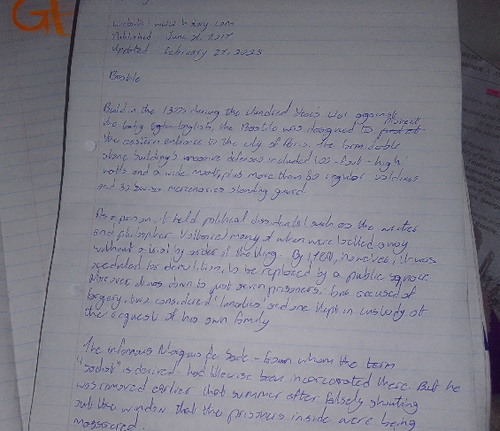 G1
website: www.history.com
Published June 21, 2017
Updated February 27, 2025
Bastile
Build in the 1300s during the Hundred Years War against
the English, the Bastile was designed to protect
the eastern entrance to the city of Paris. The formidable
stone building's massive defenses included 100-foot-high
walls and a wide moat, plus more than 80 regular soldiers
and 30 Swiss mercenaries standing guard.
As a prison, it held political dissidents (such as the writer
and philosopher Voltaire) many of whom were locked away
without a trial by order of the King. By 1789, however, it was
scheduled for demolition, to be replaced by a public square.
Moreover it was down to just seven prisoners: four accused of
forgery, two considered "lunatics" and one kept in custody at
the request of his own family
The infamous Marquis de Sade - from whom the term
"sadist" is derived had likewise been incarcerated there. But he
was removed earlier that summer after falsely shouting
out the window that the prisoners inside were being
massacred.